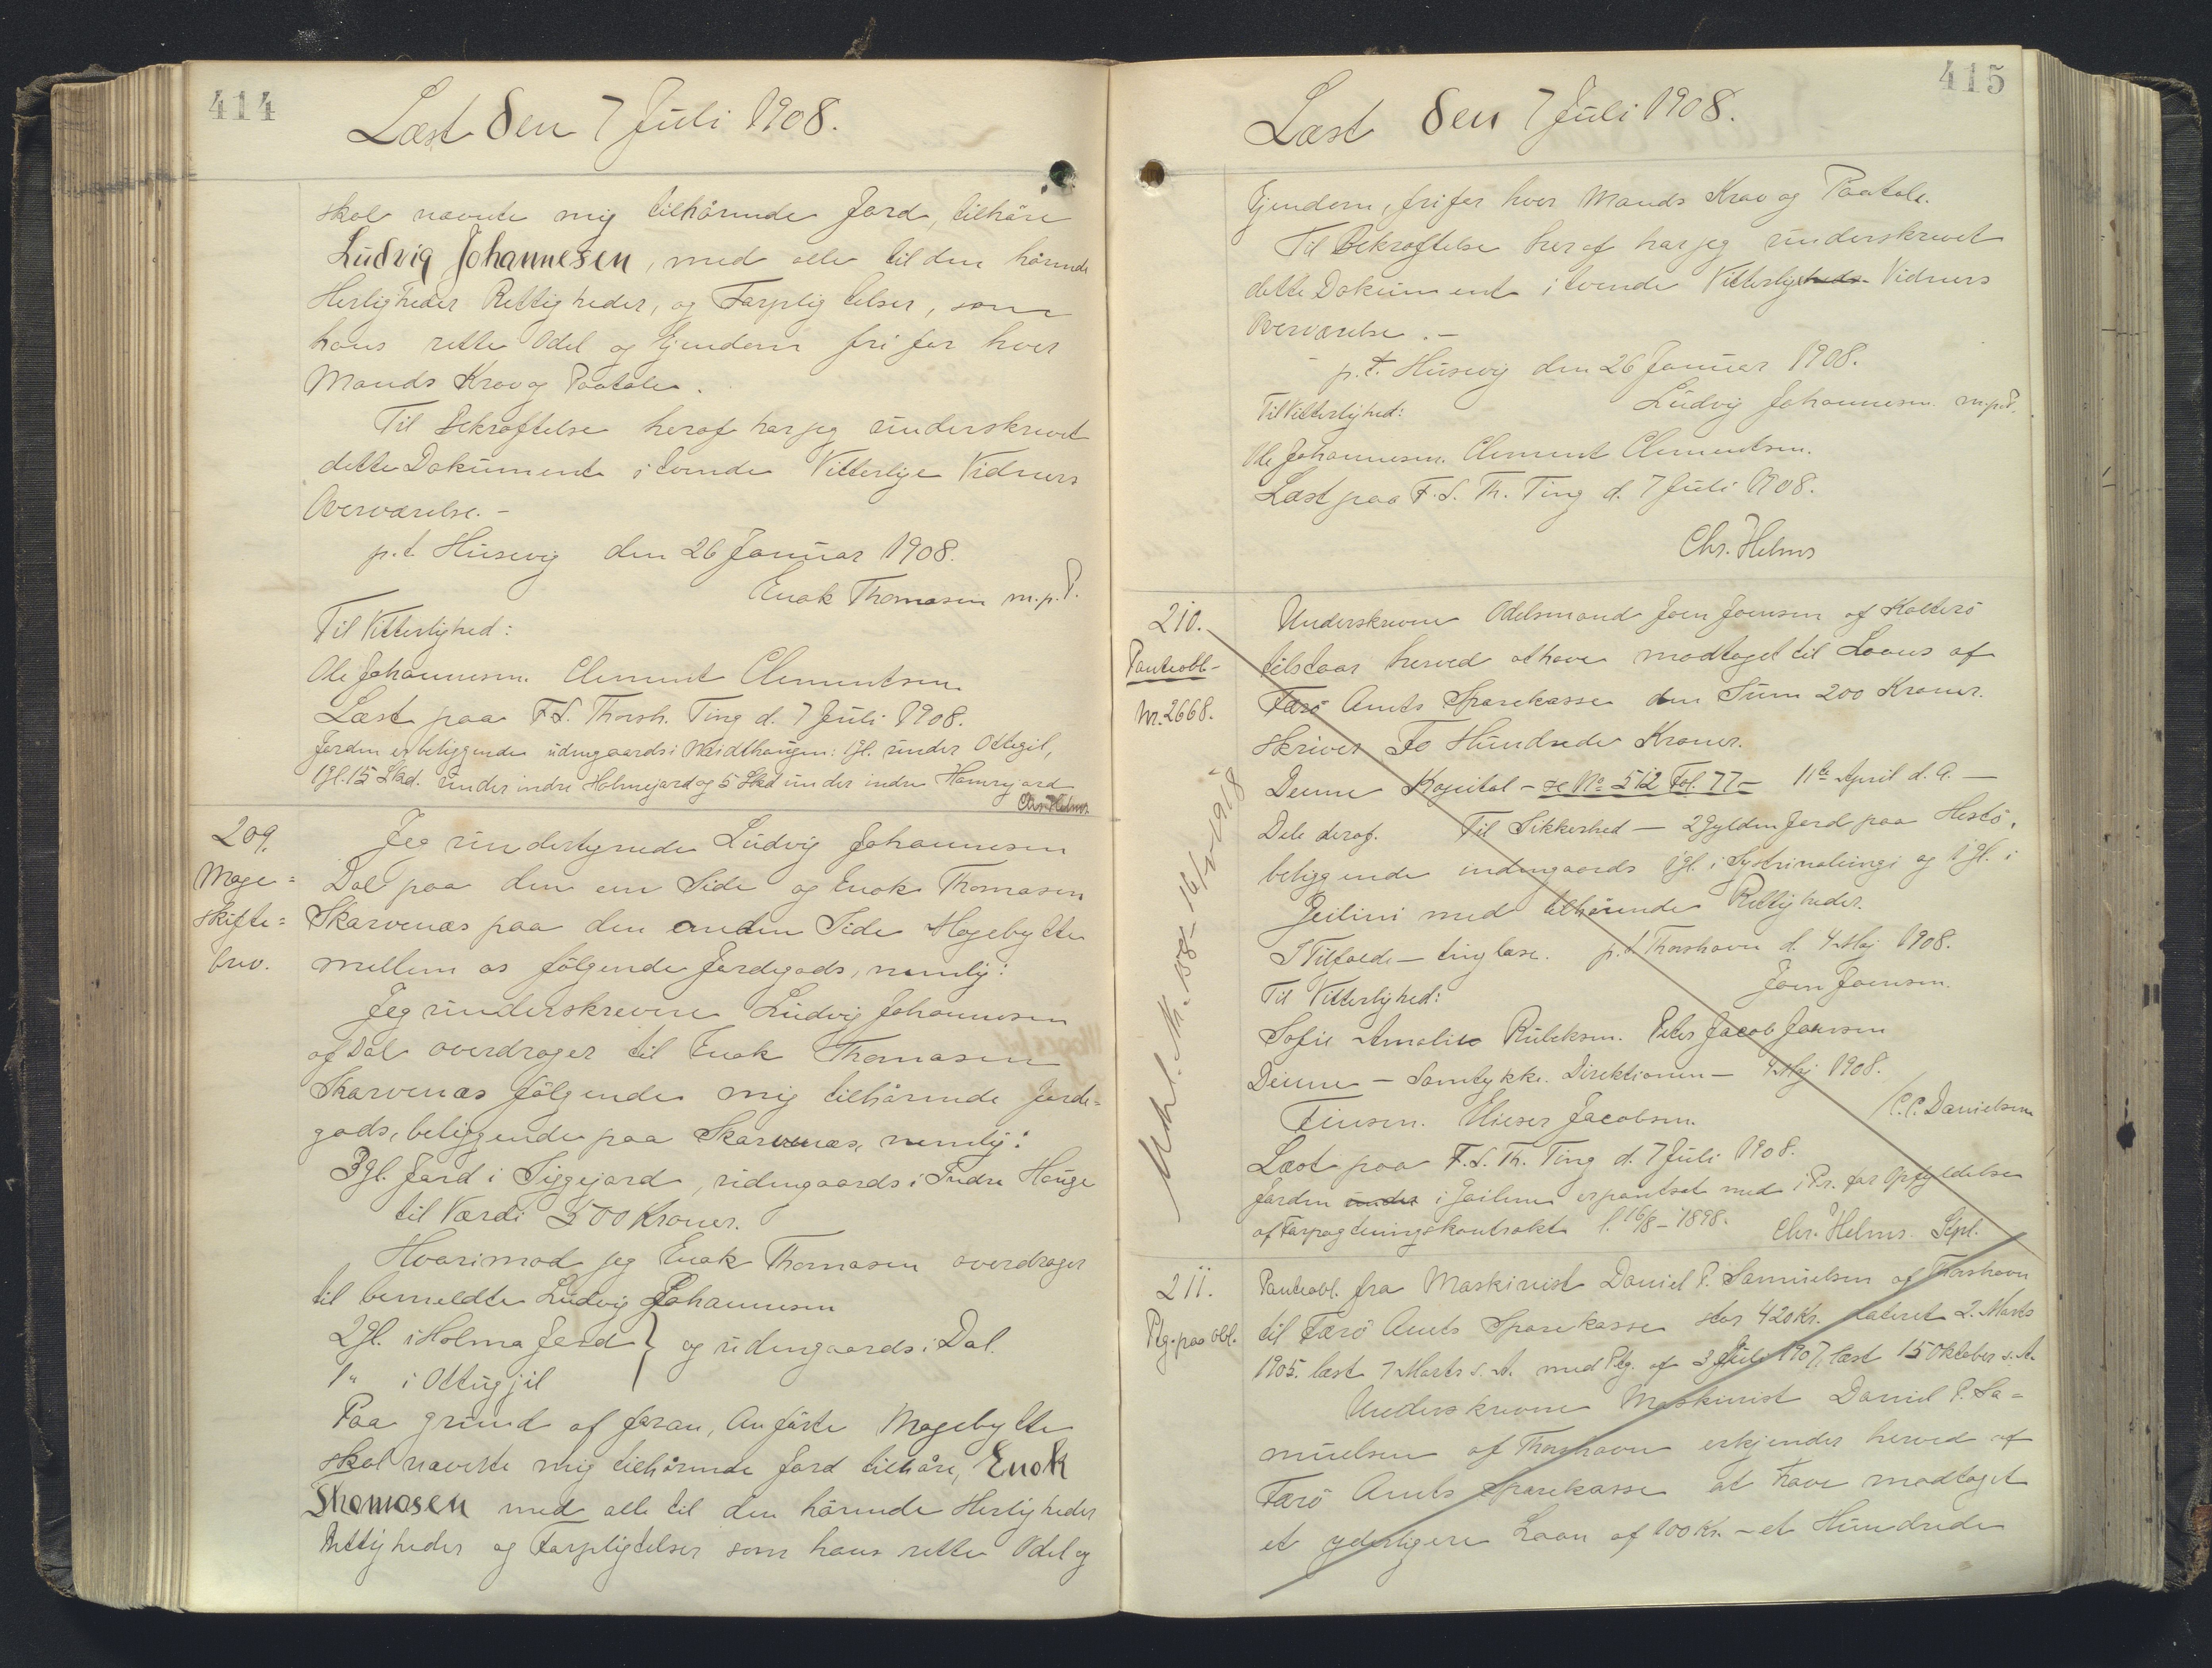 414
Læst den 7 Juli 1908.
skal nævnte mig tilhörende Jord, tilhöre
Ludvig Johannesen, med alle til den hörende
Herligheder Rettigheder, og Forpligtelser, som
hans rette Odel og Ejendom fri for hver
Mands Krav og Paatale.
Til Bekræftelse heraf har jeg underskrevet
dette Dokument i tvende Vitterlige Vidners
Overværelse. -
p.t. Husevig den 26 Januar 1908.
Enok Thomasen m.p.P.
Til Vitterlighed:
Ole Johannesen. Clement Clementsen.
Læst paa F.S. Thorsh. Ting d. 7 Juli 1908.
Jorden er beliggende udengaards i : 1gl. under Ottegil,
1gl. 15 Skd. under indre Holmejord og 5 Skd under indre Hamrejord
Chr. Helms.
209.
Mage=
skifte=
brev.
Jeg undertegnede Ludvig Johannesen
Dal paa den ene Side og Enok Thomasen
Skarvenæs paa den anden Side Magebytte
mellem os fölgende Jordegods, nemlig:
Jeg underskrevne Ludvig Johannesen
af Dal overdrager til Enok Thomasen
Skarvenæs fölgende mig tilhörende Jorde=
gods, beliggende paa Skarvenæs, nemlig:
3gl. Jord i Siggejord, udengaards i Indre Hauge
til Værdi 500 Kroner.
Hvorimod jeg Enok Thomasen overdrager
til bemeldte Ludvig Johannesen
2gl. i Holma Jord } og udengaards i Dal.
1 " i Ottugjil
Paa grund af foran, Anförte Magebytte
skal nævnte mig tilhörende Jord tilhöre, Enok
Thomasen med alle til den hörende Herligheder
Rettigheder og Forpligtelser som hans rette Odel og
415
Læst den 7 Juli 1908.
Ejendom, fri for hver Mands Krav og Paatale.
Til Bekræftelse heraf har jeg underskrevet
dette Dokument i tvende Vitterligheds Vidners
Overværelse. -
p.t. Husevig den 26 Januar 1908.
Ludvig Johannesen m.p.P.
Til Vitterlighed:
Ole Johannesen. Clement Clementsen.
Læst paa F.S. Th. Ting d. 7 Juli 1908.
Chr. Helms
210.
Panteobl-
Nr. 2668.
Underskrevne Odelsmand Joen Joensen af Kolterö
tilstaar herved at have modtaget til Laans af
Færö Amts Sparekasse den Sum 200 Kroner.
skriver To Hundrede Kroner.
Denne Kapital - se No 512 Fol. 77 - 11te April d. A. -
Dele deraf. Til Sikkerhed - 2 Gylden Jord paa Hestö,
beliggende indengaards 1gl. i og 1gl. i
Geilini med tilhörende Rettigheder.
I Tilfælde - tinglæse. p.t. Thorshavn d. 4 Maj 1908.
Til Vitterlighed: Joen Joensen.
Sofie Amalie Rubeksen. Peter Jacob Joensen
Denne - Samtykke. Direktionen - 4 Maj 1908.
Finsen. Elieser Jacobsen. C.C. Danielsen
Læst paa F.S. Th. Ting d. 7 Juli 1908.
Jorden under i Geilene er pantsat med 1. Pr. for Opfyldelse
af Forpagtningskontrakt l. 16/8 - 1898. Chr. Helms. Stpl.
211.
Ptg. paa Obl.
Panteobl. fra Maskinist Daniel P. Samuelsen af Thorshavn
til Færö Amts Sparekasse stor 420 Kr. dateret 2. Marts
1905. læst 7 Marts s. A. med Ptg. af 3 Juli 1907, læst 15 Oktober s. A.
Underskrevne Maskinist Daniel P. Sa=
muelsen af Thorshavn erkjender herved af
Færö Amts Sparekasse at have modtaget
et yderligere Laan af 100 Kr. - et Hundrede